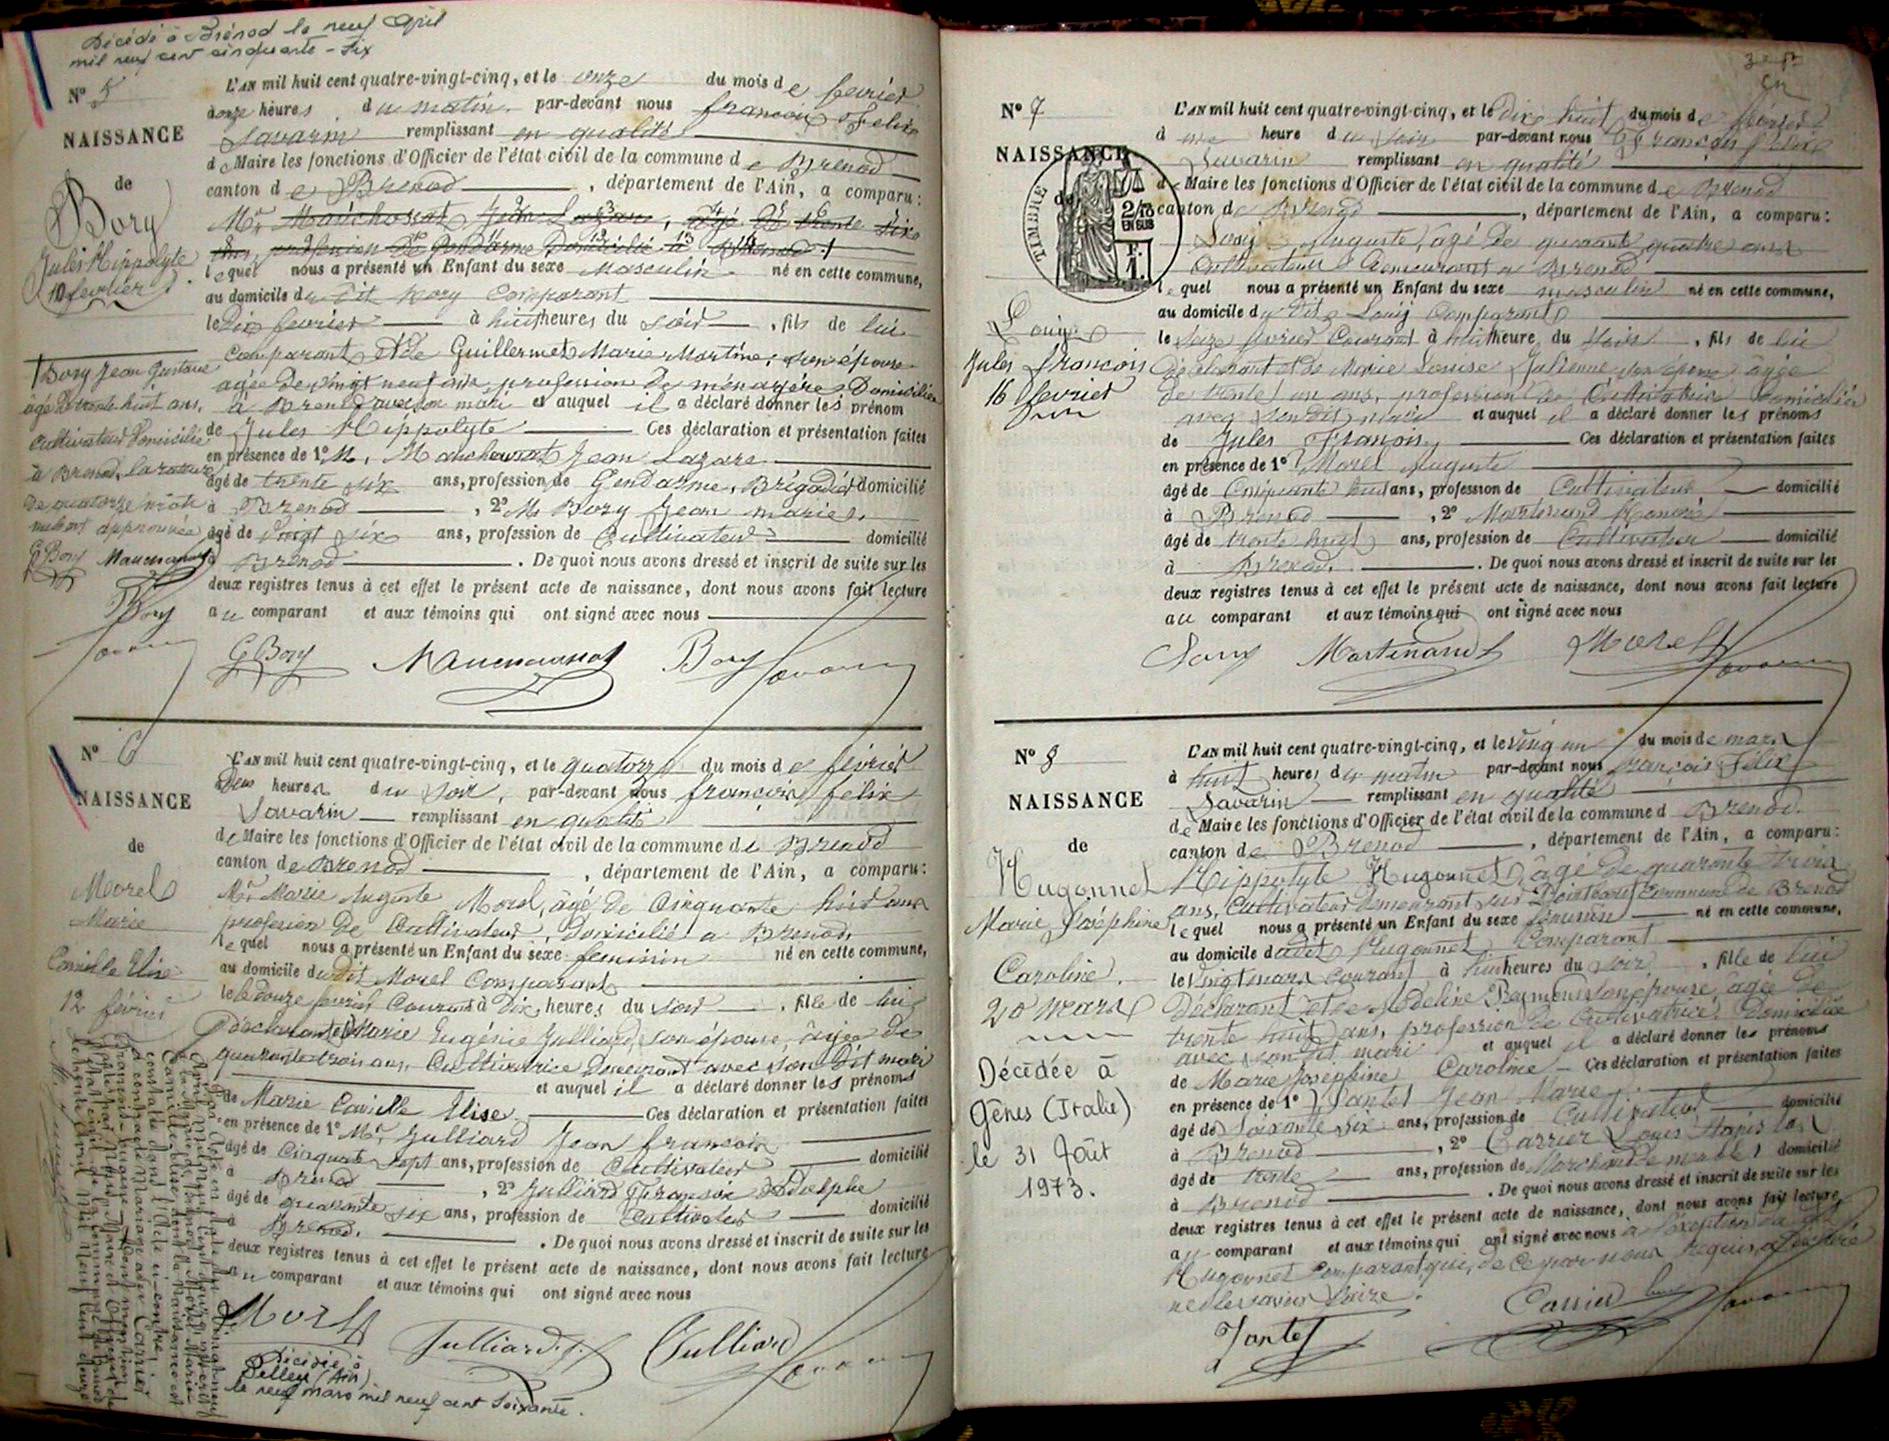 Décédé à Brénod le neuf April
mil neuf cent cinquante-six
N° 5
NAISSANCE
de
Bory
Jules Hippolyte
10 fevrier
L'AN mil huit cent quatre-vingt-cinq, et le onze du mois de fevrier
à onze heures du matin par-devant nous francois Felix
Savarin remplissant en qualité
de Maire les fonctions d'Officier de l'état civil de la commune de Brenod
canton de Brenod, département de l'Ain, a comparu:
lequel nous a présenté un Enfant du sexe Masculin né en cette commune,
au domicile du dit Bory Comparant
le Dix fevrier à huit heures du soir, fils de lui
comparant et de Guillermet Marie Martine, son épouse
agée de vingt neuf ans, profession de ménagère Domiciliée
à Brenod avec son mari et auquel il a déclaré donner les prénom
de Jules Hippolyte Ces déclaration et présentation faites
en présence de 1° M. Manchausat Jean Lazare
âgé de trente six ans, profession de Gendarme, Brigadier domicilié
à Brenod, 2° Mr Bory Jean marie
âgé de vingt six ans, profession de Cultivateur domicilié
à Brenod. De quoi nous avons dressé et inscrit de suite sur les
deux registres tenus à cet effet le présent acte de naissance, dont nous avons fait lecture
au comparant et aux témoins qui ont signé avec nous
G Bory Bory Savarin
Bory Jean Gustave
âgé de trente huit ans,
cultivateur Domicilié
à Brenod, la rature
de quatorze mots
nuls approuvée
G Bory
Bory
Savarin
N° 6
NAISSANCE
de
Morel
Marie
Camille Elise
12 févrie
L'AN mil huit cent quatre-vingt-cinq, et le quatorze du mois de février
à Deux heures du soir, par-devant nous françois felix
Savarin remplissant en qualité
de Maire les fonctions d'Officier de l'état civil de la commune de Brenod
canton de Brenod, département de l'Ain, a comparu:
Mr Marie Auguste Morel, âgé de Cinquante huit ans
profession de Cultivateur, domicilié a Brenod,
lequel nous a présenté un Enfant du sexe feminin né en cette commune,
au domicile du dit Morel Comparant
le douze fevrier Courant à Dix heures du soir, fille de lui
Déclarant et Marie Eugénie Julliard, son épouse, âgée de
quarante trois ans, Cultivatrice Demeurant avec son Dit mari
et auquel il a déclaré donner les prénoms
de Marie Camille Elise. Ces déclaration et présentation faites
en présence de 1° Mr. Julliard Jean francois
âgé de Cinquante sept ans, profession de Cultivateur domicilié
à Brenod, 2° Julliard François Adolphe
âgé de quarante six ans, profession de Cultivateur domicilié
à Brenod. De quoi nous avons dressé et inscrit de suite sur les
deux registres tenus à cet effet le présent acte de naissance, dont nous avons fait lecture
au comparant et aux témoins qui ont signé avec nous
Morel Julliard Julliard Savarin
Décédée à
Belley (Ain)
le neuf mars mil neuf cent soixante.
N° 7
NAISSANCE
de
TIMBRE
2/10
EN SUS
F.
1.
Louy
Jules François
16 fevrier
L'AN mil huit cent quatre-vingt-cinq, et le dix huit du mois de février
à une heure du soir par-devant nous François felix
Savarin remplissant en qualité
de Maire les fonctions d'Officier de l'état civil de la commune de Brenod
canton de Brenod, département de l'Ain, a comparu:
Louy Auguste, âgé de quarante quatre ans
Cultivateur Demeurant a Brenod
lequel nous a présenté un Enfant du sexe masculin né en cette commune,
au domicile du Dit Louy Comparant
le seize fevrier Courant à huit heure du soir, fils de lui
déclarant et de Marie Louise Julienne son épouse âgée
de trente un ans, profession de Cultivatrice Domiciliée
avec son dit mari et auquel il a déclaré donner les prénoms
de Jules François, Ces déclaration et présentation faites
en présence de 1° Morel Auguste
âgé de Cinquante huit ans, profession de Cultivateur, domicilié
à Brenod, 2° Martinand Honoré
âgé de trente huit ans, profession de Cultivateur domicilié
à Brenod. De quoi nous avons dressé et inscrit de suite sur les
deux registres tenus à cet effet le présent acte de naissance, dont nous avons fait lecture
au comparant et aux témoins qui ont signé avec nous
Louy Martinand Morel Savarin
N° 8
NAISSANCE
de
Hugonnet
Marie Joséphine
Caroline.
20 mars
Décédée à
Gênes (Italie)
le 31 Août
1973.
L'AN mil huit cent quatre-vingt-cinq, et le vingt un du mois de mars
à huit heures du matin par-devant nous françois Félix
Savarin remplissant en qualité
de Maire les fonctions d'Officier de l'état civil de la commune d Brenod.
canton de Brenod, département de l'Ain, a comparu:
Hippolyte Hugonnet, âgé de quarante trois
ans, Cultivateur Demeurant sur Commune de Brenod
lequel nous a présenté un Enfant du sexe féminin né en cette commune,
au domicile dudit Hugonnet Comparant
le vingt mars courant à huit heures du soir, fille de lui
Déclarant et de Adeline Raymond son épouse âgée de
trente huit ans, profession de Cultivatrice, Domiciliée
avec son dit mari et auquel il a déclaré donner les prénoms
de Marie Joséphine Caroline Ces déclaration et présentation faites
en présence de 1° Jantet Jean Marie
âgé de soixante six ans, profession de Cultivateur domicilié
à Brenod, 2° Carrier Louis Stanislas
âgé de trente ans, profession de domicilié
à Brenod. De quoi nous avons dressé et inscrit de suite sur les
deux registres tenus à cet effet le présent acte de naissance, dont nous avons fait lecture
au comparant et aux témoins qui ont signé avec nous à l'exception du dit
Hugonnet Comparant qui, de ce par nous requis a déclaré
ne le savoir faire.
Jantet Carrier Savarin